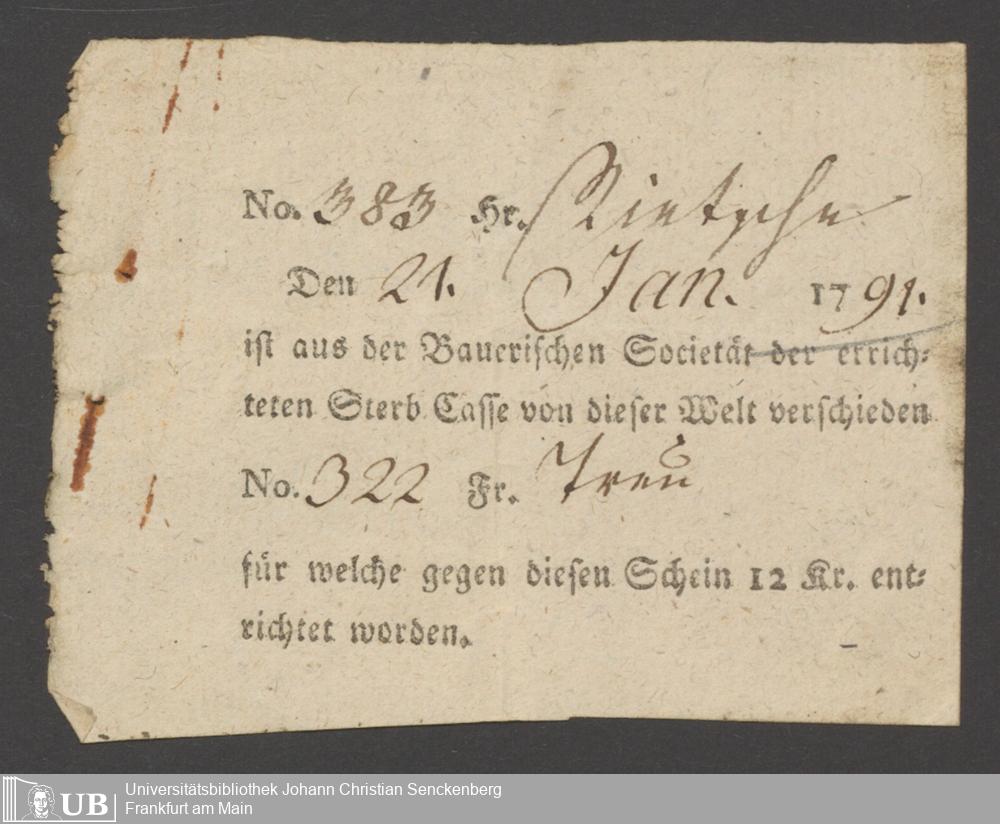 No. 383 Hr. Nietzsche
Den 21. Jan. 1791.
ist aus der Bauerischen Societät der errich⸗
teten Sterb Casse von dieser Welt verschieden
No. 322 Fr. Treu
für welche gegen diesen Schein 12 Kr. ent⸗
richtet worden.
UB
Universitätsbibliothek Johann Christian Senckenberg
Frankfurt am Main